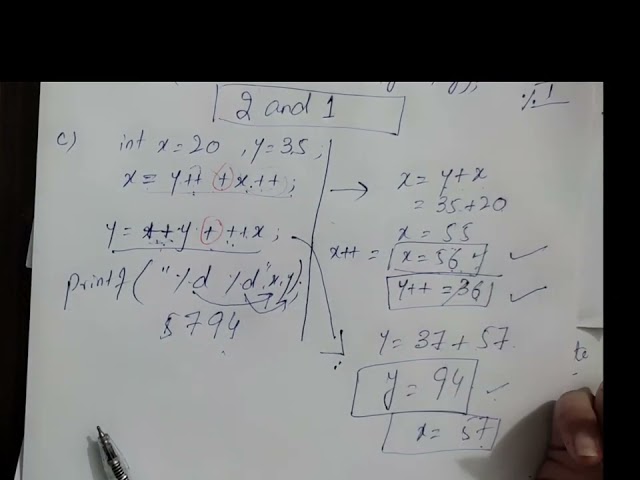 2 and 1
c) int x=20 , y=35;
x = y++ + x++;
y = ++y + ++x;
printf("%d %d",x,y);
5794
x = y+x
= 35+20
x = 55
x++ = x=56
y++ =36
y = 37 + 57
y = 94
x = 57